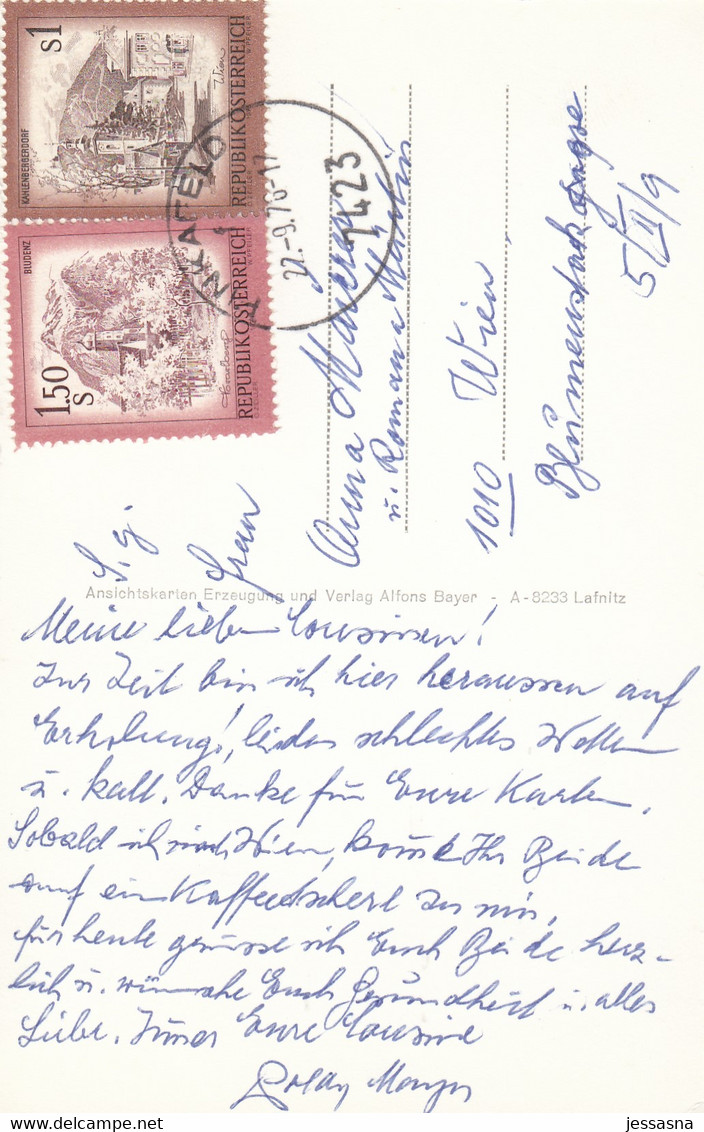 S1
KAHLENBERGERDORF
Wien
REPUBLIK ÖSTERREICH
BLUDENZ
1.50 S
REPUBLIK ÖSTERREICH
PINKAFELD
22.-9.76-17
7423
Frau
Anna
u. Romana Martin
1010 Wien
5/II/9
Ansichtskarten Erzeugung und Verlag Alfons Bayer - A-8233 Lafnitz
Meine lieben Cousinen!
Zur Zeit bin ich hier heraussen auf
Erholung!, leider schlechtes Wetter
u. kalt. Danke für Eure Karten.
Sobald ich nach Wien, kommt Ihr Beide
auf ein Kaffeetscherl zu mir,
für heute grüsse ich Euch Beide herz-
lich u. wünsche Euch Gesundheit u. alles
Liebe. Immer Eure Cousine
jessasna